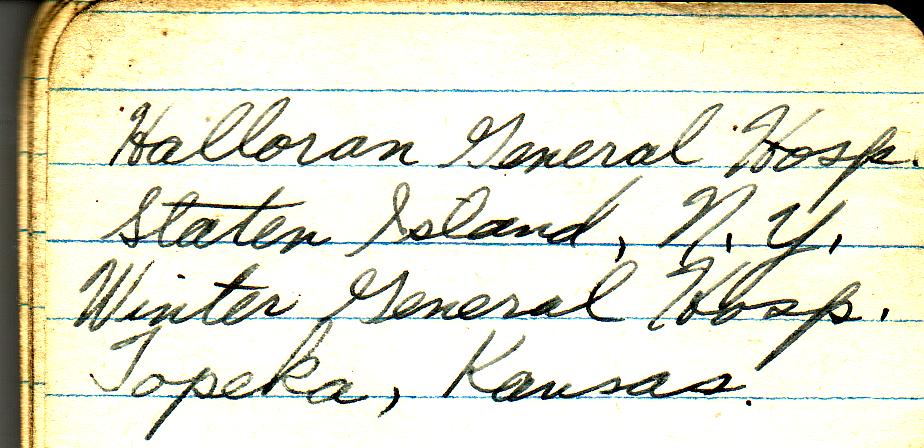 Halloran General Hosp.
Staten Island, N.Y.
Winter General Hosp.
Topeka, Kansas.